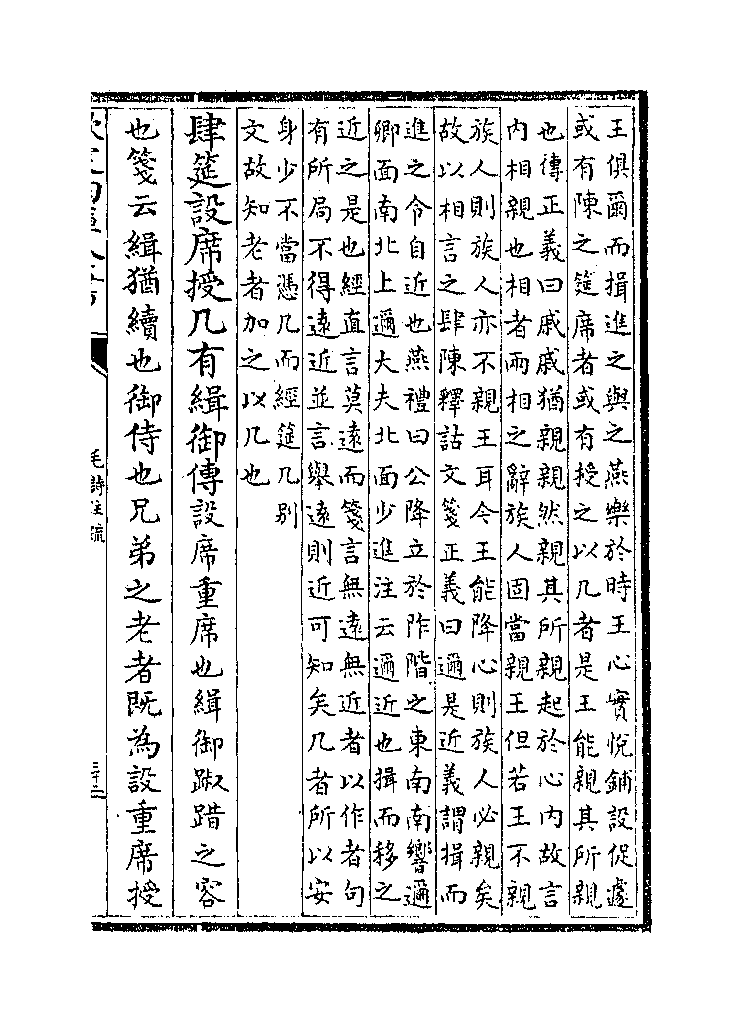 王俱爾而揖進之與之燕樂於時王心實悅鋪設促遽
或有陳之筵席者或有授之以几者是王能親其所親
也傳正義曰戚戚猶親親然親其所親起於心內故言
內相親也相者兩相之辭族人固當親王但若王不親
族人則族人亦不親王耳今王能降心則族人必親矣
故以相言之肆陳釋詁文箋正義曰邇是近義謂揖而
進之令自近也燕禮曰公降立於阼階之東南南嚮邇
卿面南北上邇大夫北面少進注云邇近也揖而移之
近之是也經直言莫遠而箋言無遠無近者以作者句
有所局不得遠近並言舉遠則近可知矣几者所以安
身少不當憑几而經筵几別
文故知老者加之以几也
肆筵設席授几有緝御傳設席重席也緝御踧踖之容
也箋云緝猶續也御侍也兄弟之老者既為設重席授
毛詩注疏